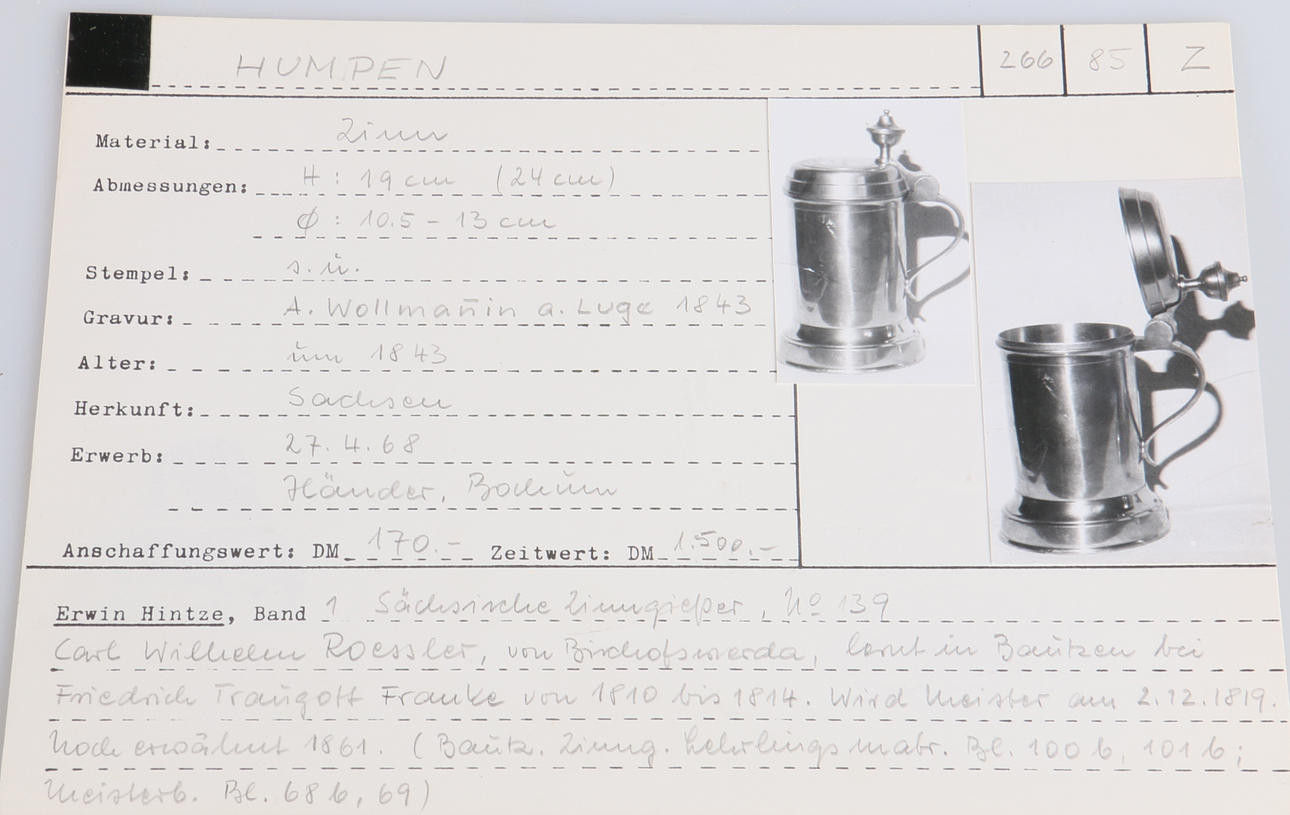 HUMPEN 266 85 Z
Material: Zinn
Abmessungen: H: 19 cm (24 cm)
Ø: 10.5 - 13 cm
Stempel: s. ü.
Gravur: A. Wollmañin a. Luge 1843
Alter: um 1843
Herkunft: Sachsen
Erwerb: 27.4.68
Händer, Bochum
Anschaffungswert: DM 170.- Zeitwert: DM 1.500.-
Erwin Hintze, Band 1 Sächsische Zinngießer, No 139
Carl Wilhelm Roessler, von Bischofswerda, lernt in Bautzen bei
Friedrich Traugott Franke von 1810 bis 1814. Wird Meister am 2.12.1819.
Noch erwähnt 1861. (Bautz. Zinng. Lehrlingsmatr. Bl. 100 b, 101 b;
Meisterb. Bl. 68 b, 69)